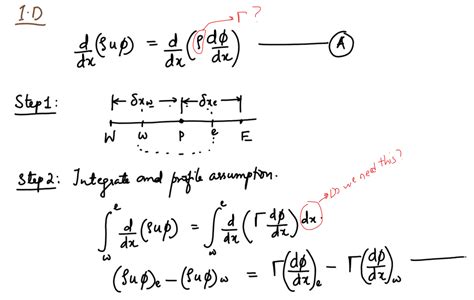 1.D
→Γ?
d/dx (ρuφ) = d/dx (ρ dφ/dx) ——— Ⓐ
Step 1:
|← δxw →|← δxe →|
W w P e E
Step 2: Integrate and profile assumption.
→Do we need this?
∫_w^e d/dx (ρuφ) = ∫_w^e d/dx (Γ dφ/dx) dx
(ρuφ)e − (ρuφ)w = Γ(dφ/dx)e − Γ(dφ/dx)w ———